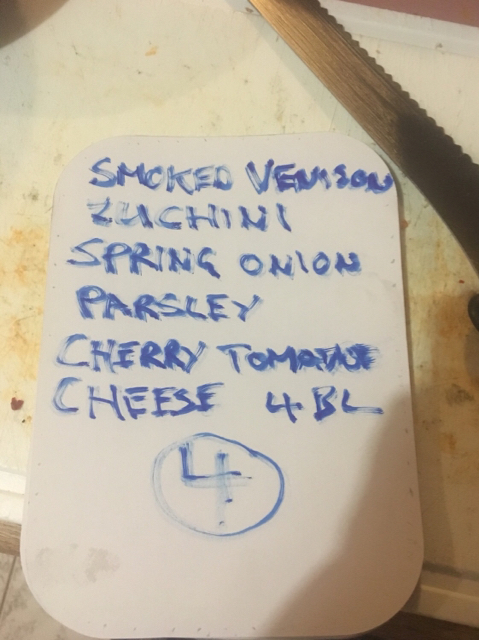 SMOKED VENISON
ZUCHINI
SPRING ONION
PARSLEY
CHERRY TOMATOE
CHEESE 4 BL
4